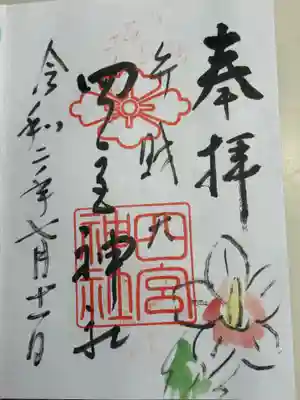 奉拝
弁財天
四宮神社
四宮
神社
令和二年七月十一日